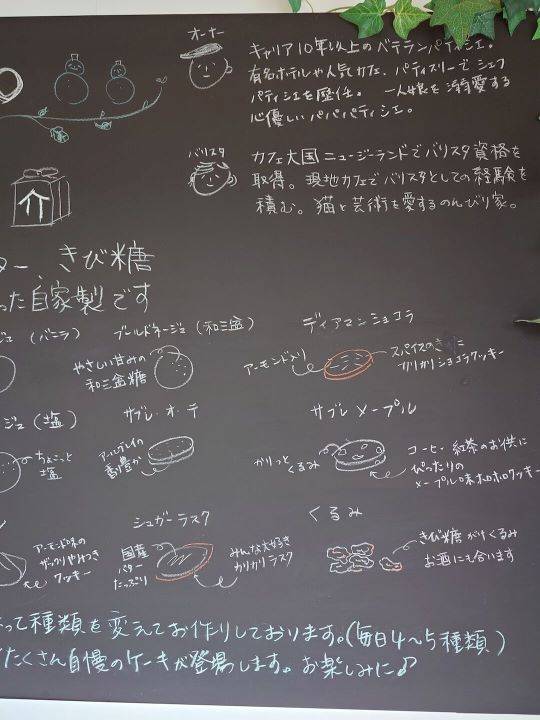 オーナー
キャリア10年以上のベテランパティシエ。
有名ホテルや人気カフェ、パティスリーでシェフ
パティシエを歴任。一人娘を溺愛する
心優しいパパパティシエ。
バリスタ
カフェ大国ニュージーランドでバリスタ資格を
取得。現地カフェでバリスタとしての経験を
積む。猫と芸術を愛するのんびり家。
介
ター、きび糖
った自家製です
ジュ(バニラ)
ブールドネージュ(和三盆)
やさしい甘みの
和三盆糖
ディアマンショコラ
アーモンド入り
スパイスのきいた
カリカリショコラクッキー
ジュ(塩)
ちょこっと
塩
サブレ・オ・テ
アールグレイの
香り豊か
サブレ メープル
かりっと
くるみ
コーヒー、紅茶のお供に
ぴったりの
メープル味ホロホロクッキー
アーモンド味の
ザックリやみつき
クッキー
シュガーラスク
国産
バター
たっぷり
みんな大好き
カリカリラスク
くるみ
きび糖がけくるみ
お酒にも合います
よって種類を変えてお作りしております。(毎日4〜5種類)
たくさん自慢のケーキが登場します。お楽しみに♪